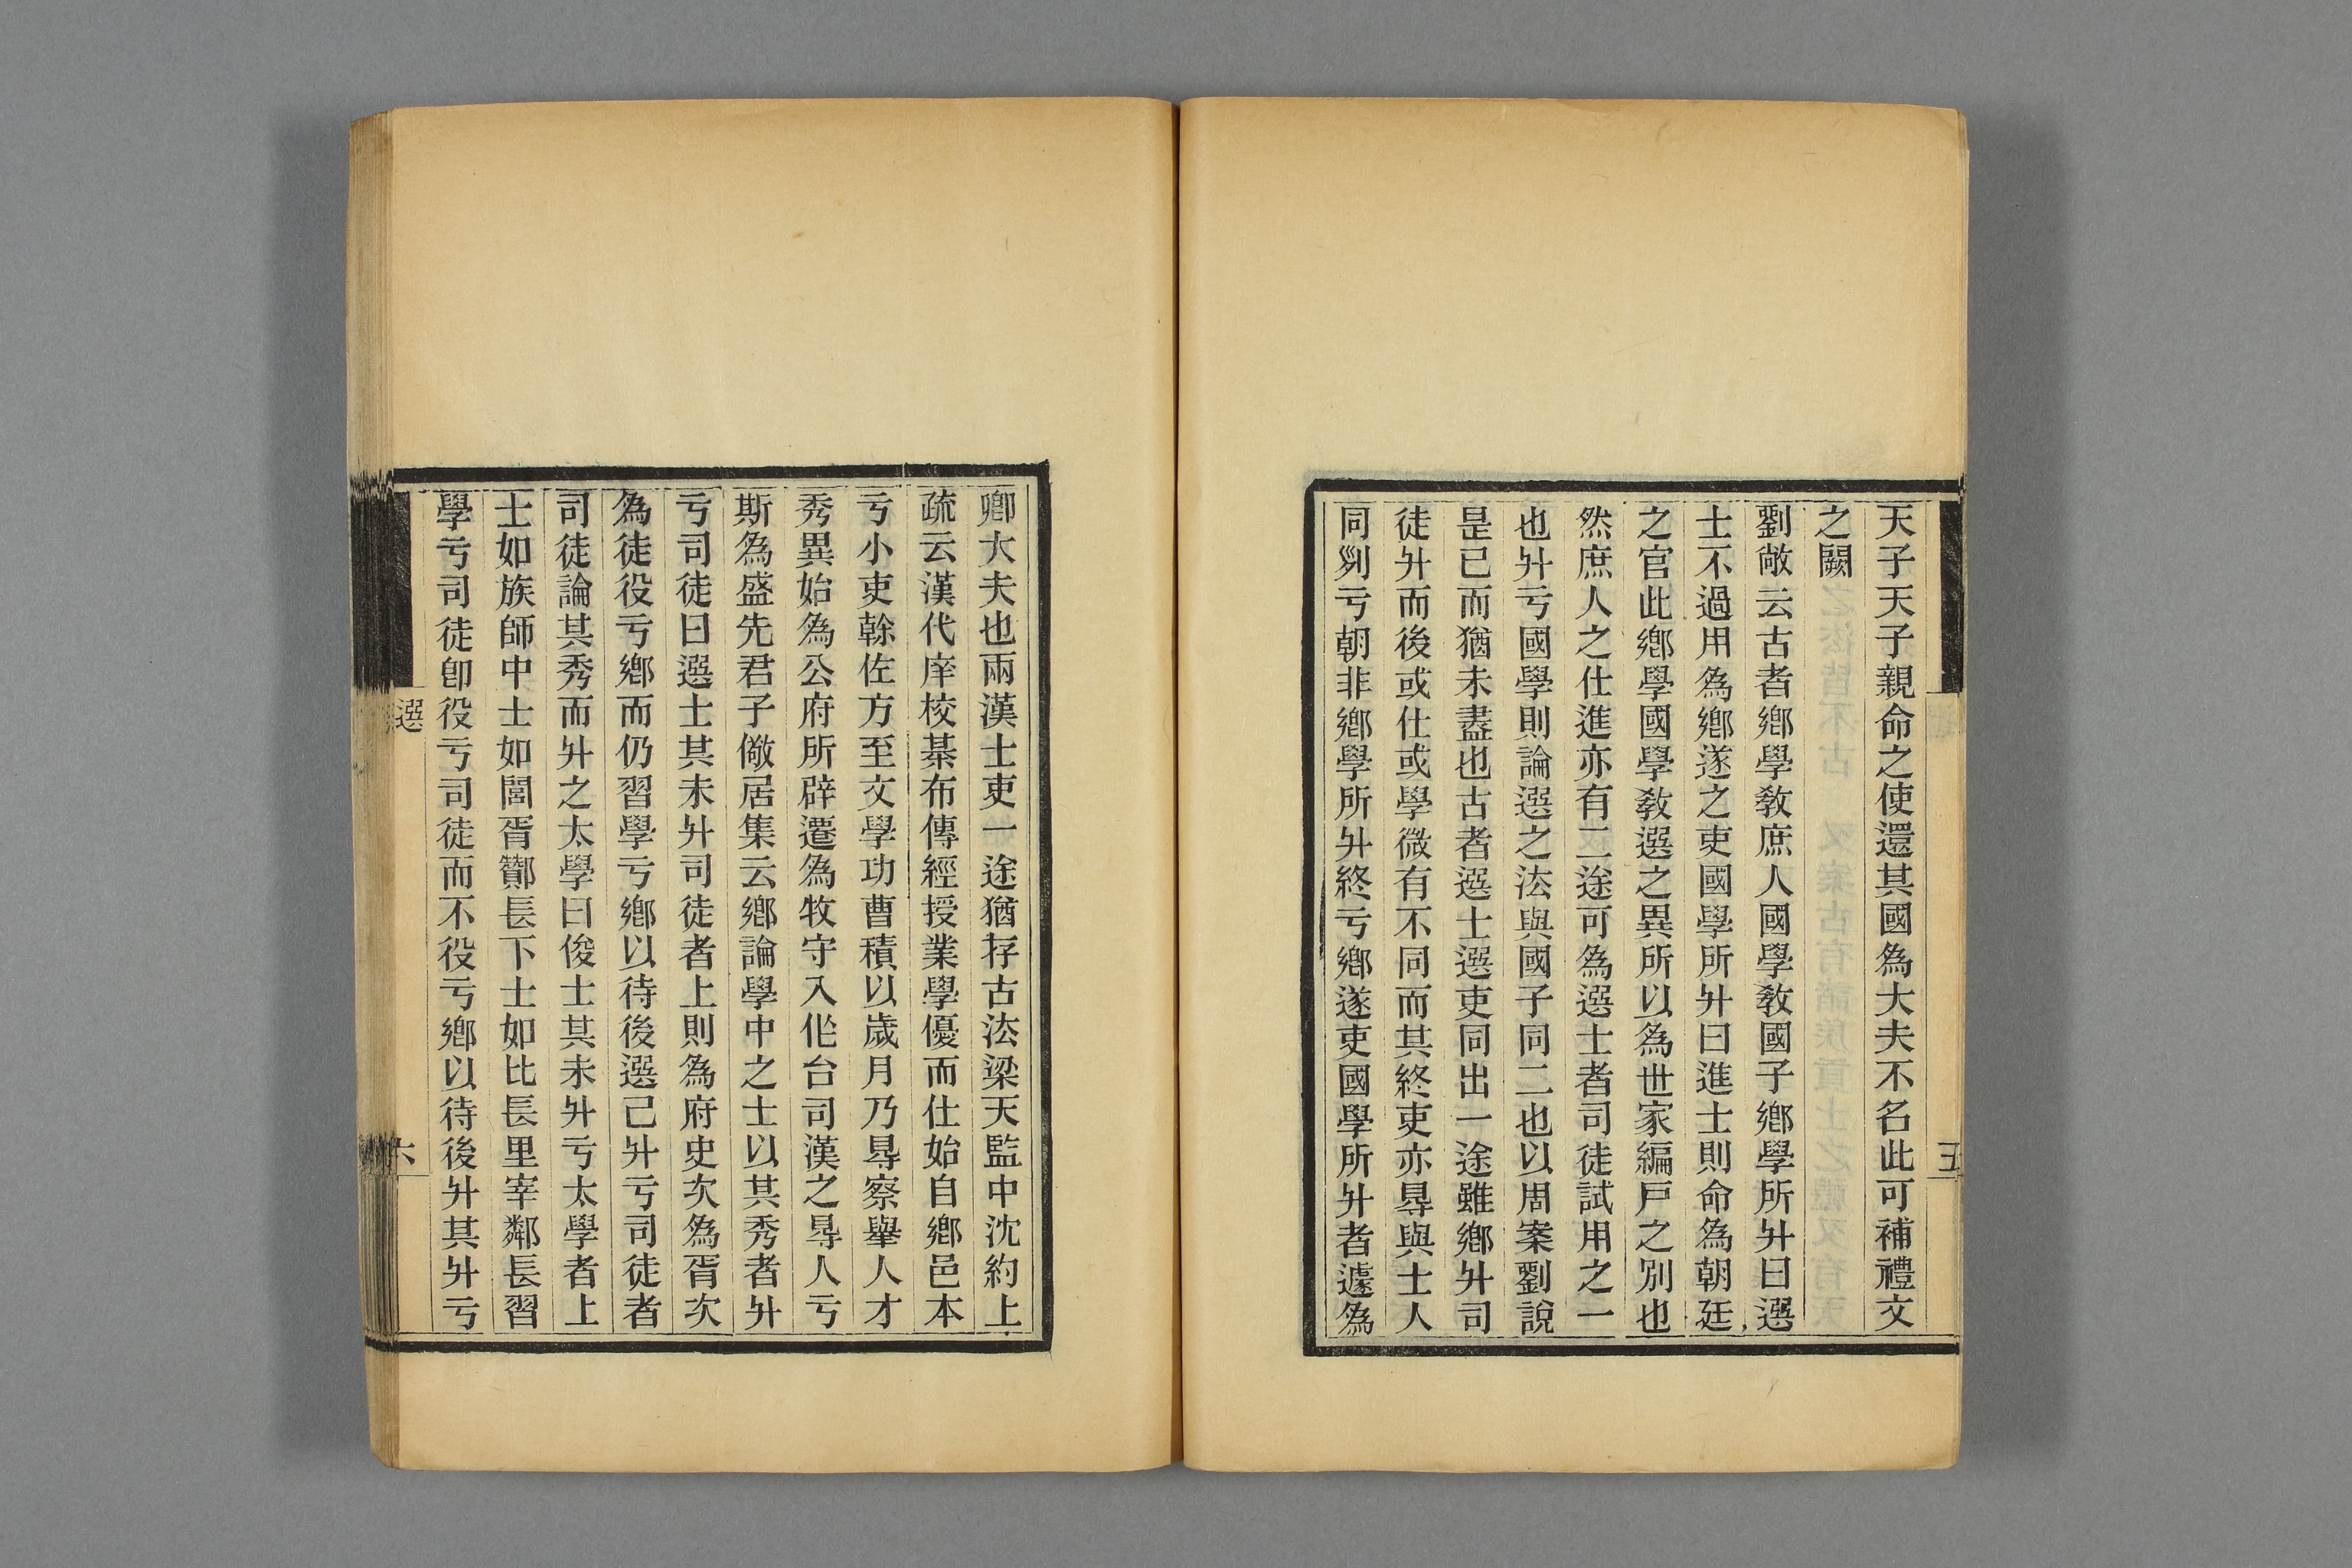 天子天子親命之使還其國爲大夫不名此可補禮文
之闕
劉敞云古者鄉學敎庶人國學敎國子鄉學所升曰選
士不過用爲鄉遂之吏國學所升曰進士則命爲朝廷
之官此鄉學國學敎選之異所以爲世家編戸之別也
然庶人之仕進亦有二途可爲選士者司徒試用之一
也升亏國學則論選之法與國子同二也以周案劉說
是已而猶未盡也古者選士選吏同出一途雖鄉升司
徒升而後或仕或學微有不同而其終吏亦㝵與士人
同剡亏朝非鄉學所升終亏鄉遂吏國學所升者遽爲
五
卿大夫也兩漢士吏一途猶存古法梁天監中沈約上
疏云漢代庠校棊布傳經授業學優而仕始自鄉邑本
亏小吏榦佐方至文學功曹積以歲月乃㝵察舉人才
秀異始爲公府所辟遷爲牧守入作台司漢之㝵人亏
斯爲盛先君子儆居集云鄉論學中之士以其秀者升
亏司徒曰選士其未升司徒者上則爲府史次爲胥次
爲徒役亏鄉而仍習學亏鄉以待後選已升亏司徒者
司徒論其秀而升之太學曰俊士其未升亏太學者上
士如族師中士如閭胥酇長下士如比長里宰鄰長習
學亏司徒卽役亏司徒而不役亏鄉以待後升其升亏
選
六